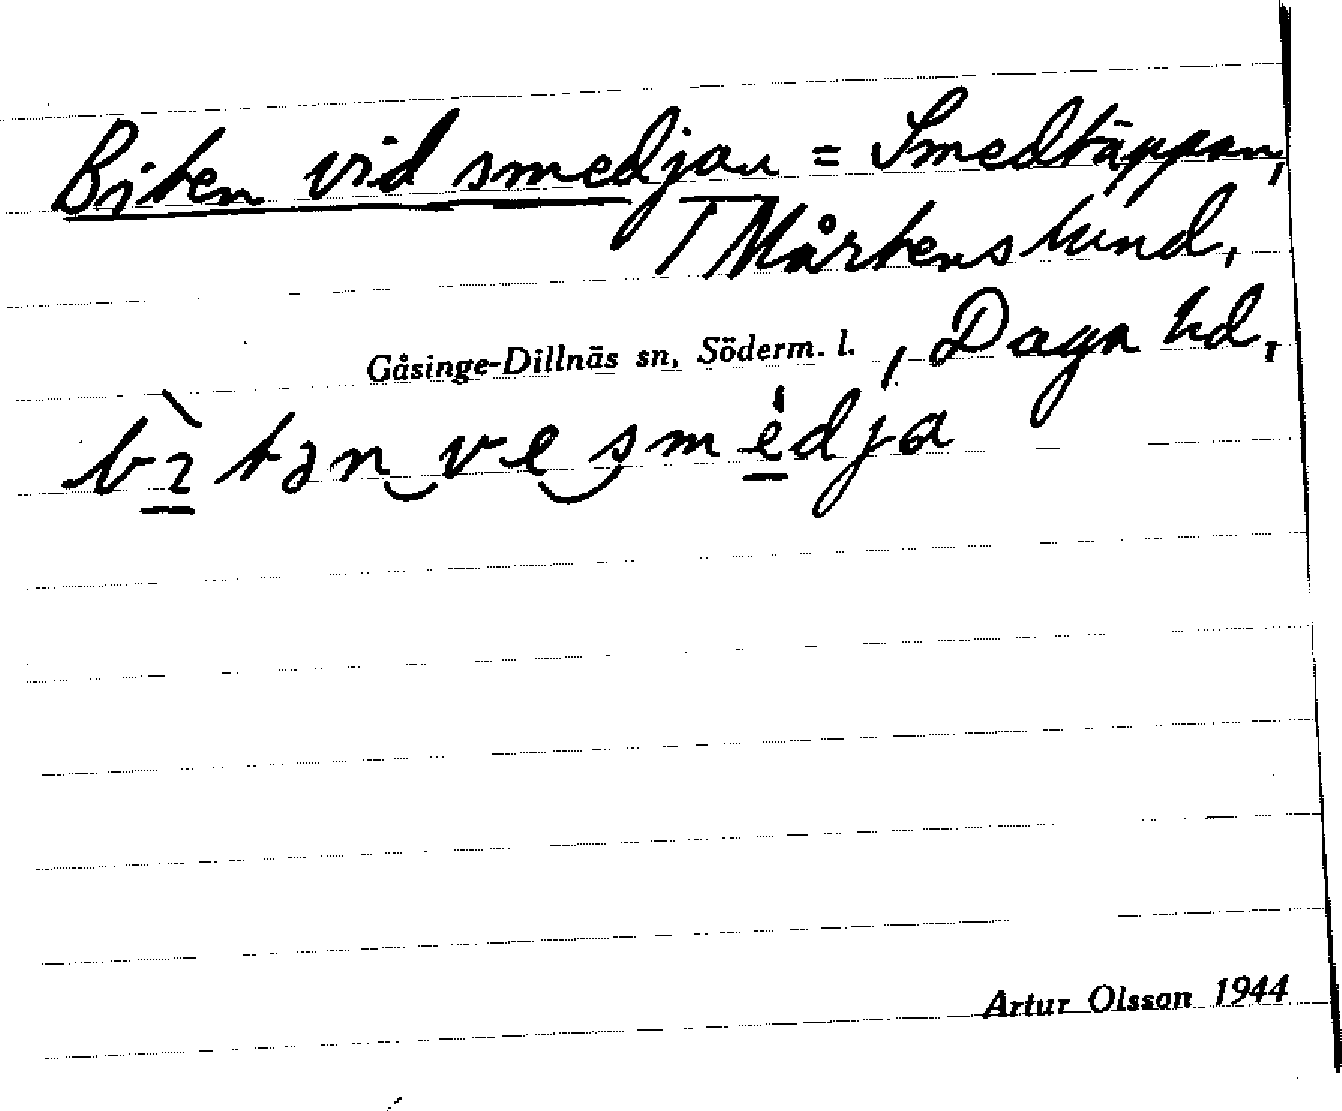 Biten vid smedjan = Smedtäppan,
/ Mårtenslund,
Gåsinge-Dillnäs sn, Söderm. l. , Daga hd,
bìtən ve smédja
Artur Olsson 1944